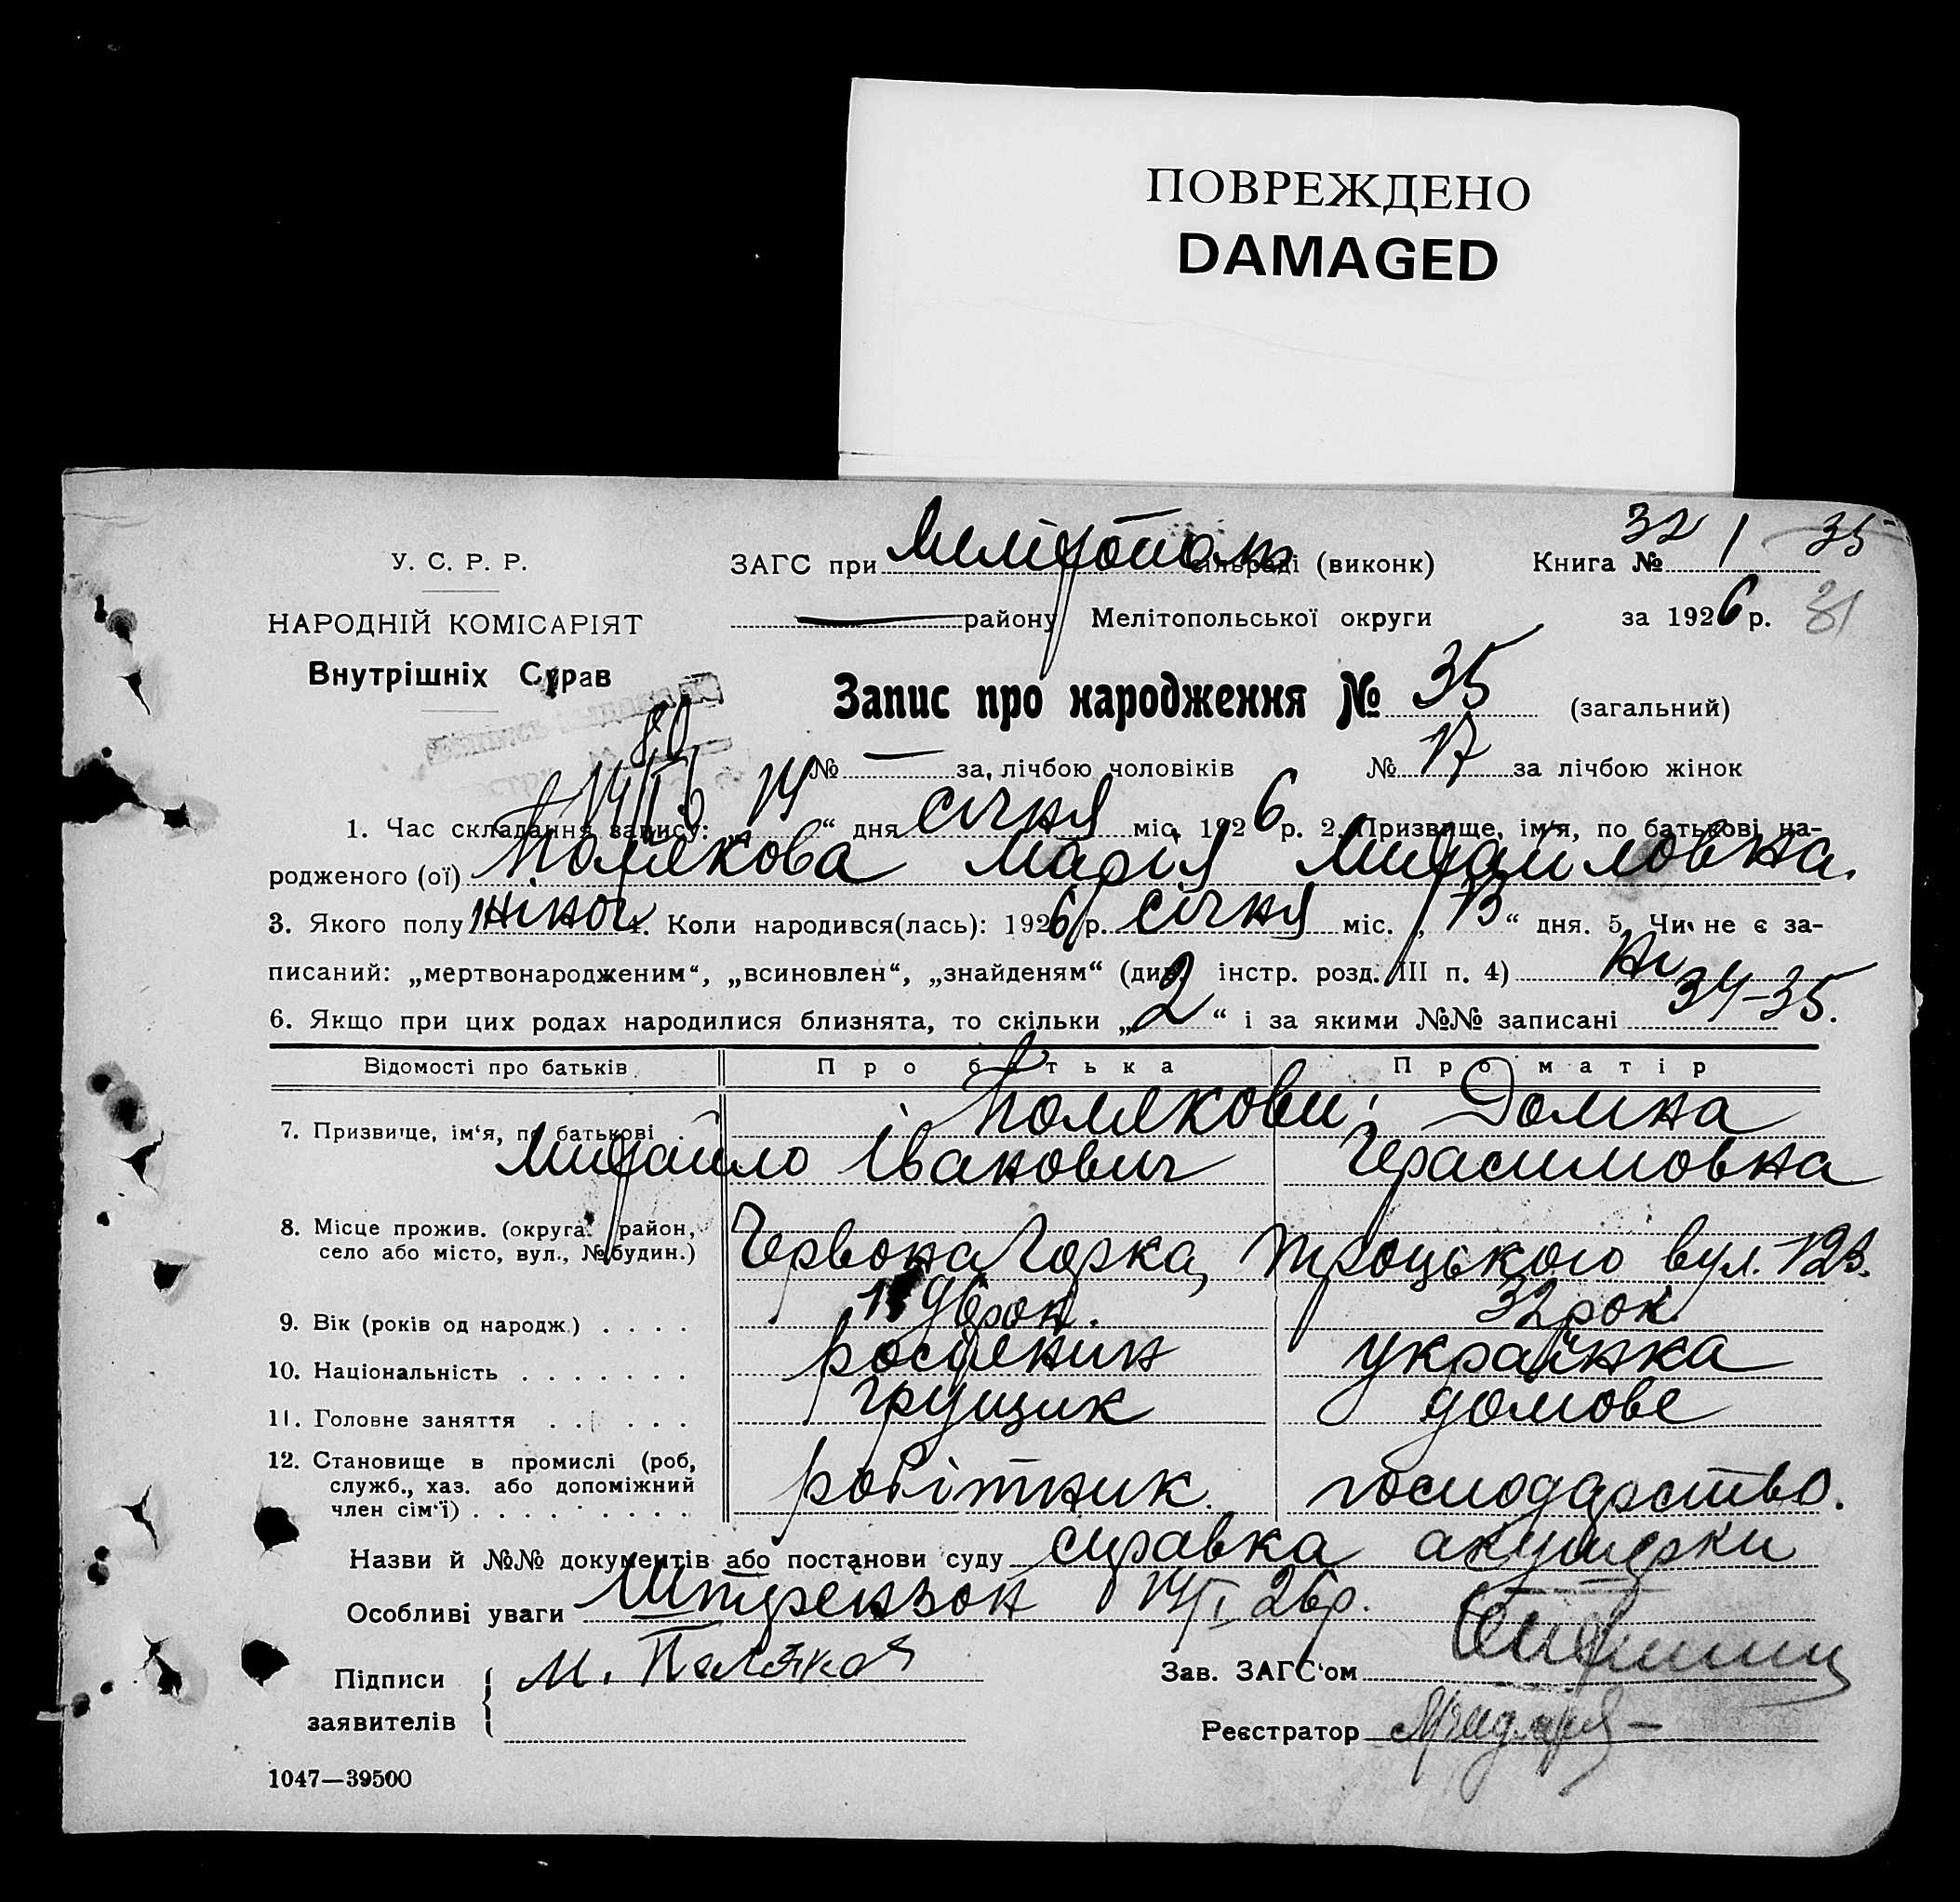 ПОВРЕЖДЕНО
DAMAGED
32 / 35
У. С. Р. Р.
ЗАГС при Мелітополь сільраді (виконк) Книга № 1
НАРОДНІЙ КОМІСАРІЯТ
району Мелітопольської округи за 1926 р. 31
Внутрішніх Справ
Запис про народження № 35 (загальний)
№ — за лічбою чоловіків № 17 за лічбою жінок
1. Час складання запису: „14“ дня січня міс. 1926 р. 2. Призвище, ім‘я, по батькові на-
родженого (ої) Полякова Марія Михайловна.
3. Якого полу жіноч 4. Коли народився(лась): 1926 р. січня міс. „13“ дня. 5. Чи не є за-
писаний: „мертвонародженим“, „всиновлен“, „знайденям“ (див. інстр. розд. III п. 4) Ні
6. Якщо при цих родах народилися близнята, то скільки „2“ і за якими №№ записані 34-35.
Відомості про батьків Про батька Про матір
7. Призвище, ім‘я, по батькові Полякови: Домна
Михайло Іванович Герасимовна
8. Місце прожив. (округа, район,
село або місто, вул., № будин.) Червона Горка, Троцького вул. 123.
9. Вік (років од народж.) 32 рок.
10. Національність росіянин українка
11. Головне заняття грущик домове
12. Становище в промислі (роб,
служб., хаз. або допоміжний
член сім‘ї) робітник. господарство.
Назви й №№ документів або постанови суду справка акушерки
Особливі уваги Штрензон 14/I 26р.
Підписи
заявителів
М. Поляков
Зав. ЗАГС‘ом
Реєстратор
1047—39500